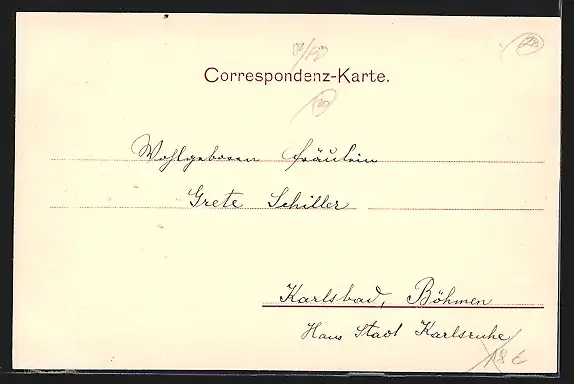 28
Correspondenz-Karte.
Wohlgeboren Fräulein
Grete Schiller
Karlsbad, Böhmen
Haus Stadt Karlsruhe
18 €